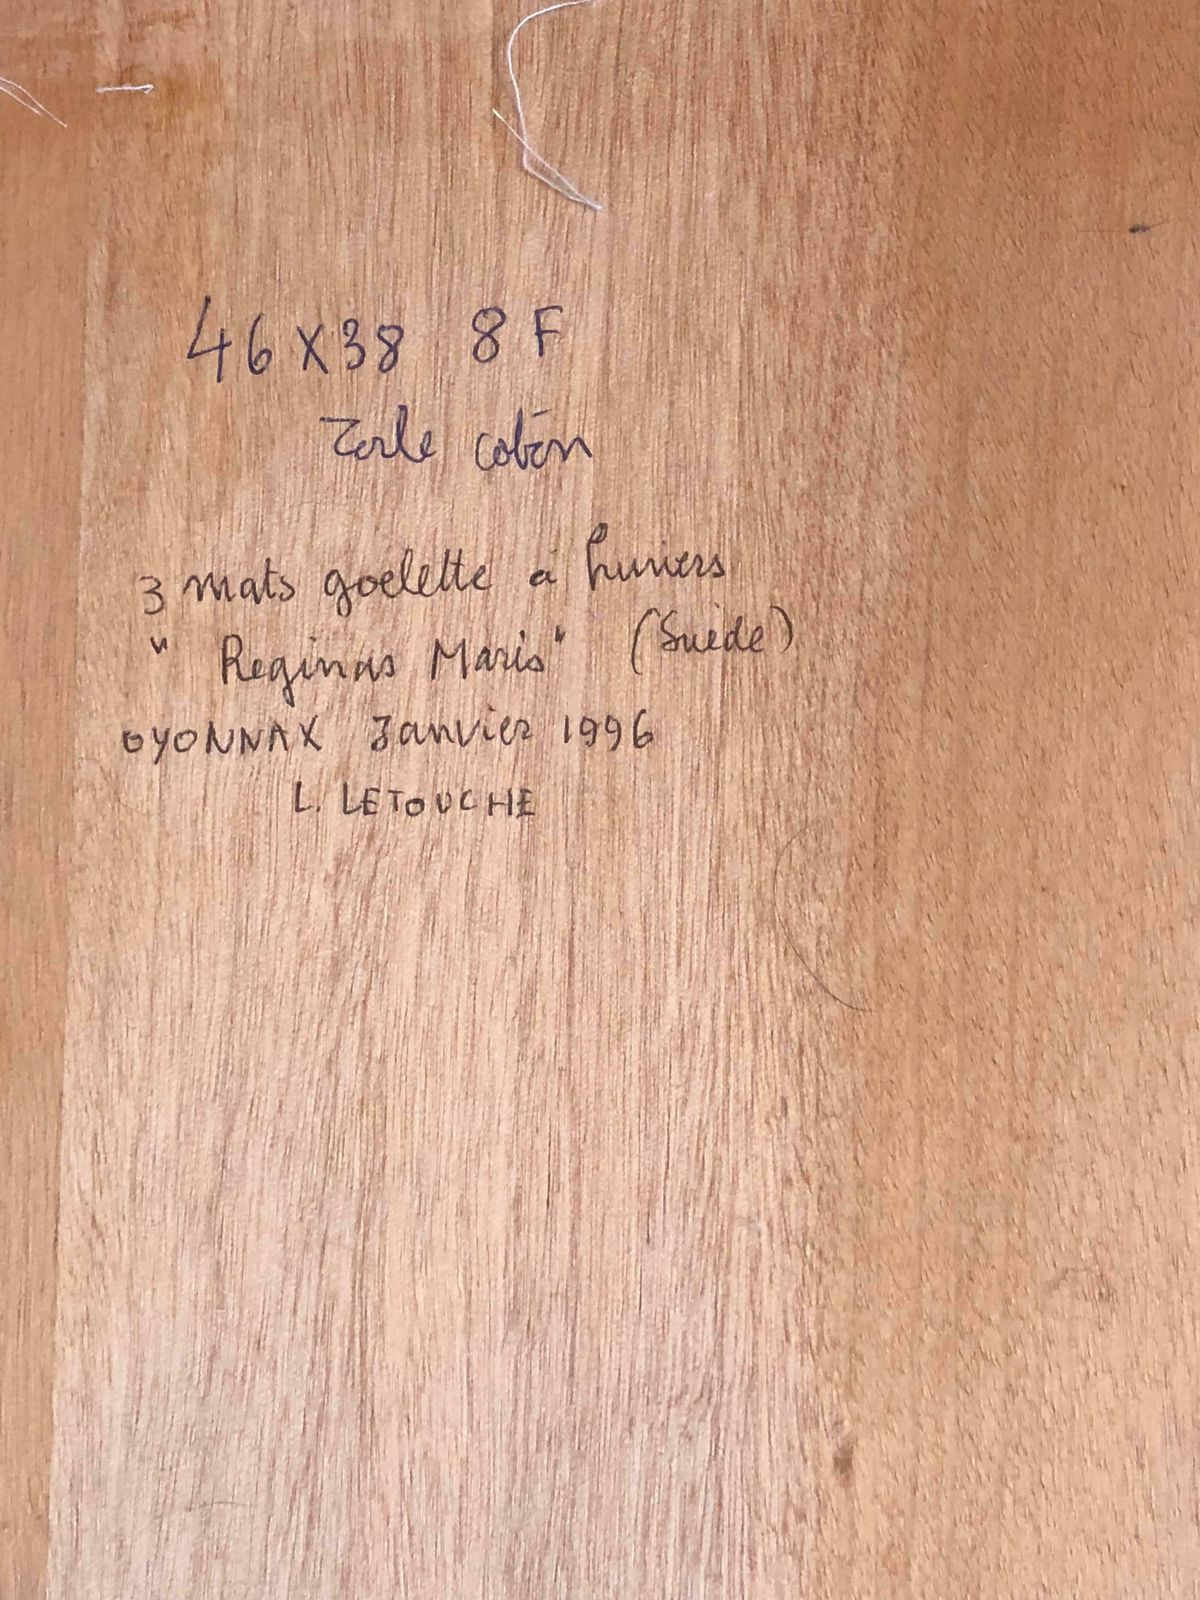 46 X 38 8 F
Toile coton
3 mats goelette a huniers
" Reginas Maris" (Suède)
OYONNAX Janvier 1996
L. LETOUCHE